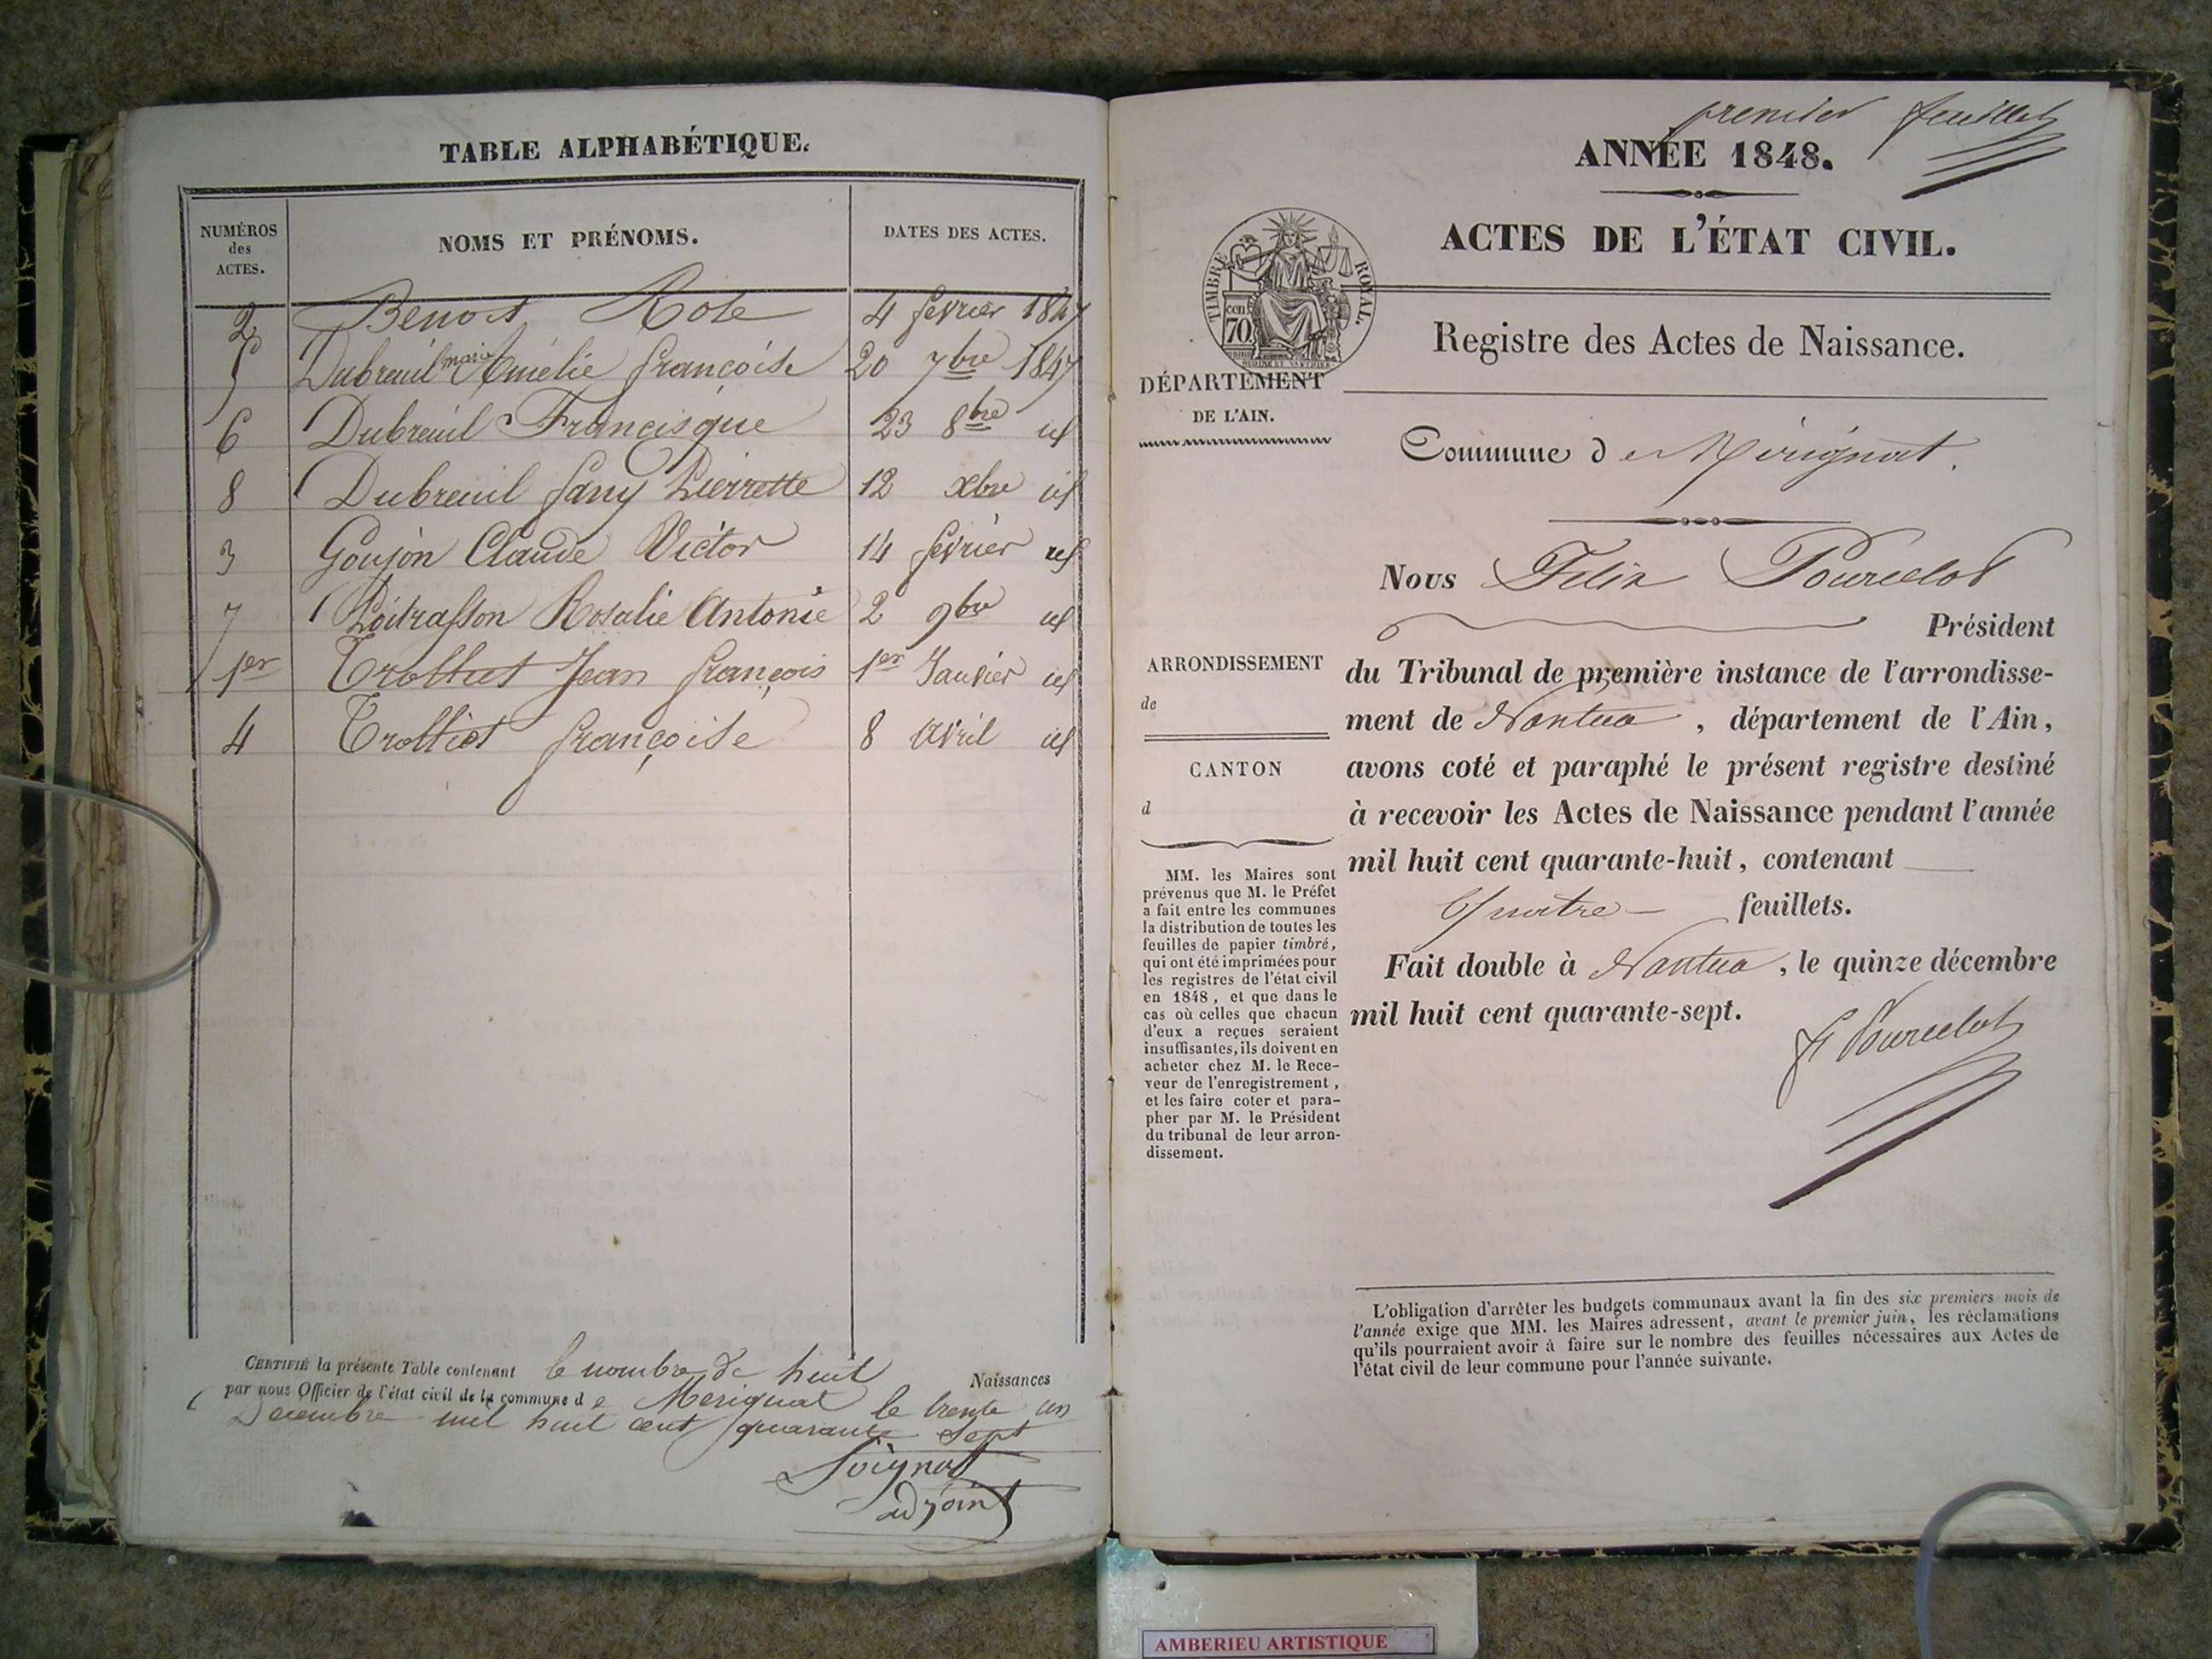 TABLE ALPHABÉTIQUE.
NUMÉROS des ACTES.
NOMS ET PRÉNOMS.
DATES DES ACTES.
2 Benoit Rose 4 fevrier 1847
5 Dubreuil marie Amélie françoise 20 7bre 1847
6 Dubreuil Francisque 23 8bre id
8 Dubreuil fany Pierrette 12 Xbre id
3 Goujon Claude Victor 14 fevrier id
7 Rosalie Antonie 2 9bre id
1er Trolliet Jean françois 1er Janvier id
4 Trolliet françoise 8 avril id
CERTIFIÉ la présente Table contenant le nombre de huit Naissances
par nous Officier de l'état civil de la commune de Merignat le trente un
Decembre mil huit cent quarante Sept
adjoint
premier feuillet
ANNÉE 1848.
ACTES DE L'ÉTAT CIVIL.
TIMBRE ROYAL.
cen.
70
Registre des Actes de Naissance.
DÉPARTEMENT
DE L'AIN.
Commune de Mérignat.
Nous Felix Pourcelot
Président
du Tribunal de première instance de l'arrondisse-
ment de Nantua, département de l'Ain,
avons coté et paraphé le présent registre destiné
à recevoir les Actes de Naissance pendant l'année
mil huit cent quarante-huit, contenant
Quatre feuillets.
Fait double à Nantua, le quinze décembre
mil huit cent quarante-sept.
F. Pourcelot
ARRONDISSEMENT
de
CANTON
d
MM. les Maires sont
prévenus que M. le Préfet
a fait entre les communes
la distribution de toutes les
feuilles de papier timbré,
qui ont été imprimées pour
les registres de l'état civil
en 1848, et que dans le
cas où celles que chacun
d'eux a reçues seraient
insuffisantes, ils doivent en
acheter chez M. le Rece-
veur de l'enregistrement,
et les faire coter et para-
pher par M. le Président
du tribunal de leur arron-
dissement.
L'obligation d'arrêter les budgets communaux avant la fin des six premiers mois de
l'année exige que MM. les Maires adressent, avant le premier juin, les réclamations
qu'ils pourraient avoir à faire sur le nombre des feuilles nécessaires aux Actes de
l'état civil de leur commune pour l'année suivante.
AMBERIEU ARTISTIQUE